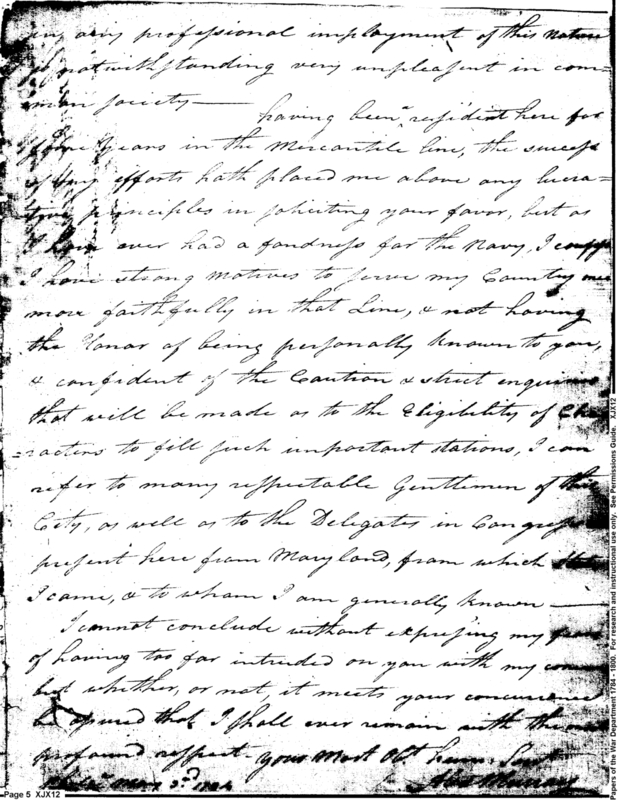 any professional imployment of this nature
notwithstanding very unpleasent in com=
mon society — having been a resident here for
some Years in the Mercantile line, the success
of my efforts hath placed me above any lucra=
tive principles in soliciting your favor, but as
I have ever had a fondness for the Navy, I
I have strong motives to serve my Country
more faithfully in that Line, & not having
the Honor of being personally known to you,
& confident of the Caution & strict enquiries
that will be made as to the Eligibility of Cha
=racters to fill such important stations, I can
refer to many respectable Gentlemen of this
City, as well as to the Delegates in Congress
present here from Maryland, from which State
I came, & to whom I am generally known —
I cannot conclude without expressing my fears
of having too far intruded on you with my
but whether, or not, it meets your concurrence
be assured that I shall ever remain with the most
profound respect your Most Obt. hum. Servt
3rd 1794
Page 5 XJX12
Papers of the War Department 1784 - 1800. For research and instructional use only. See Permissions Guide. XJX12